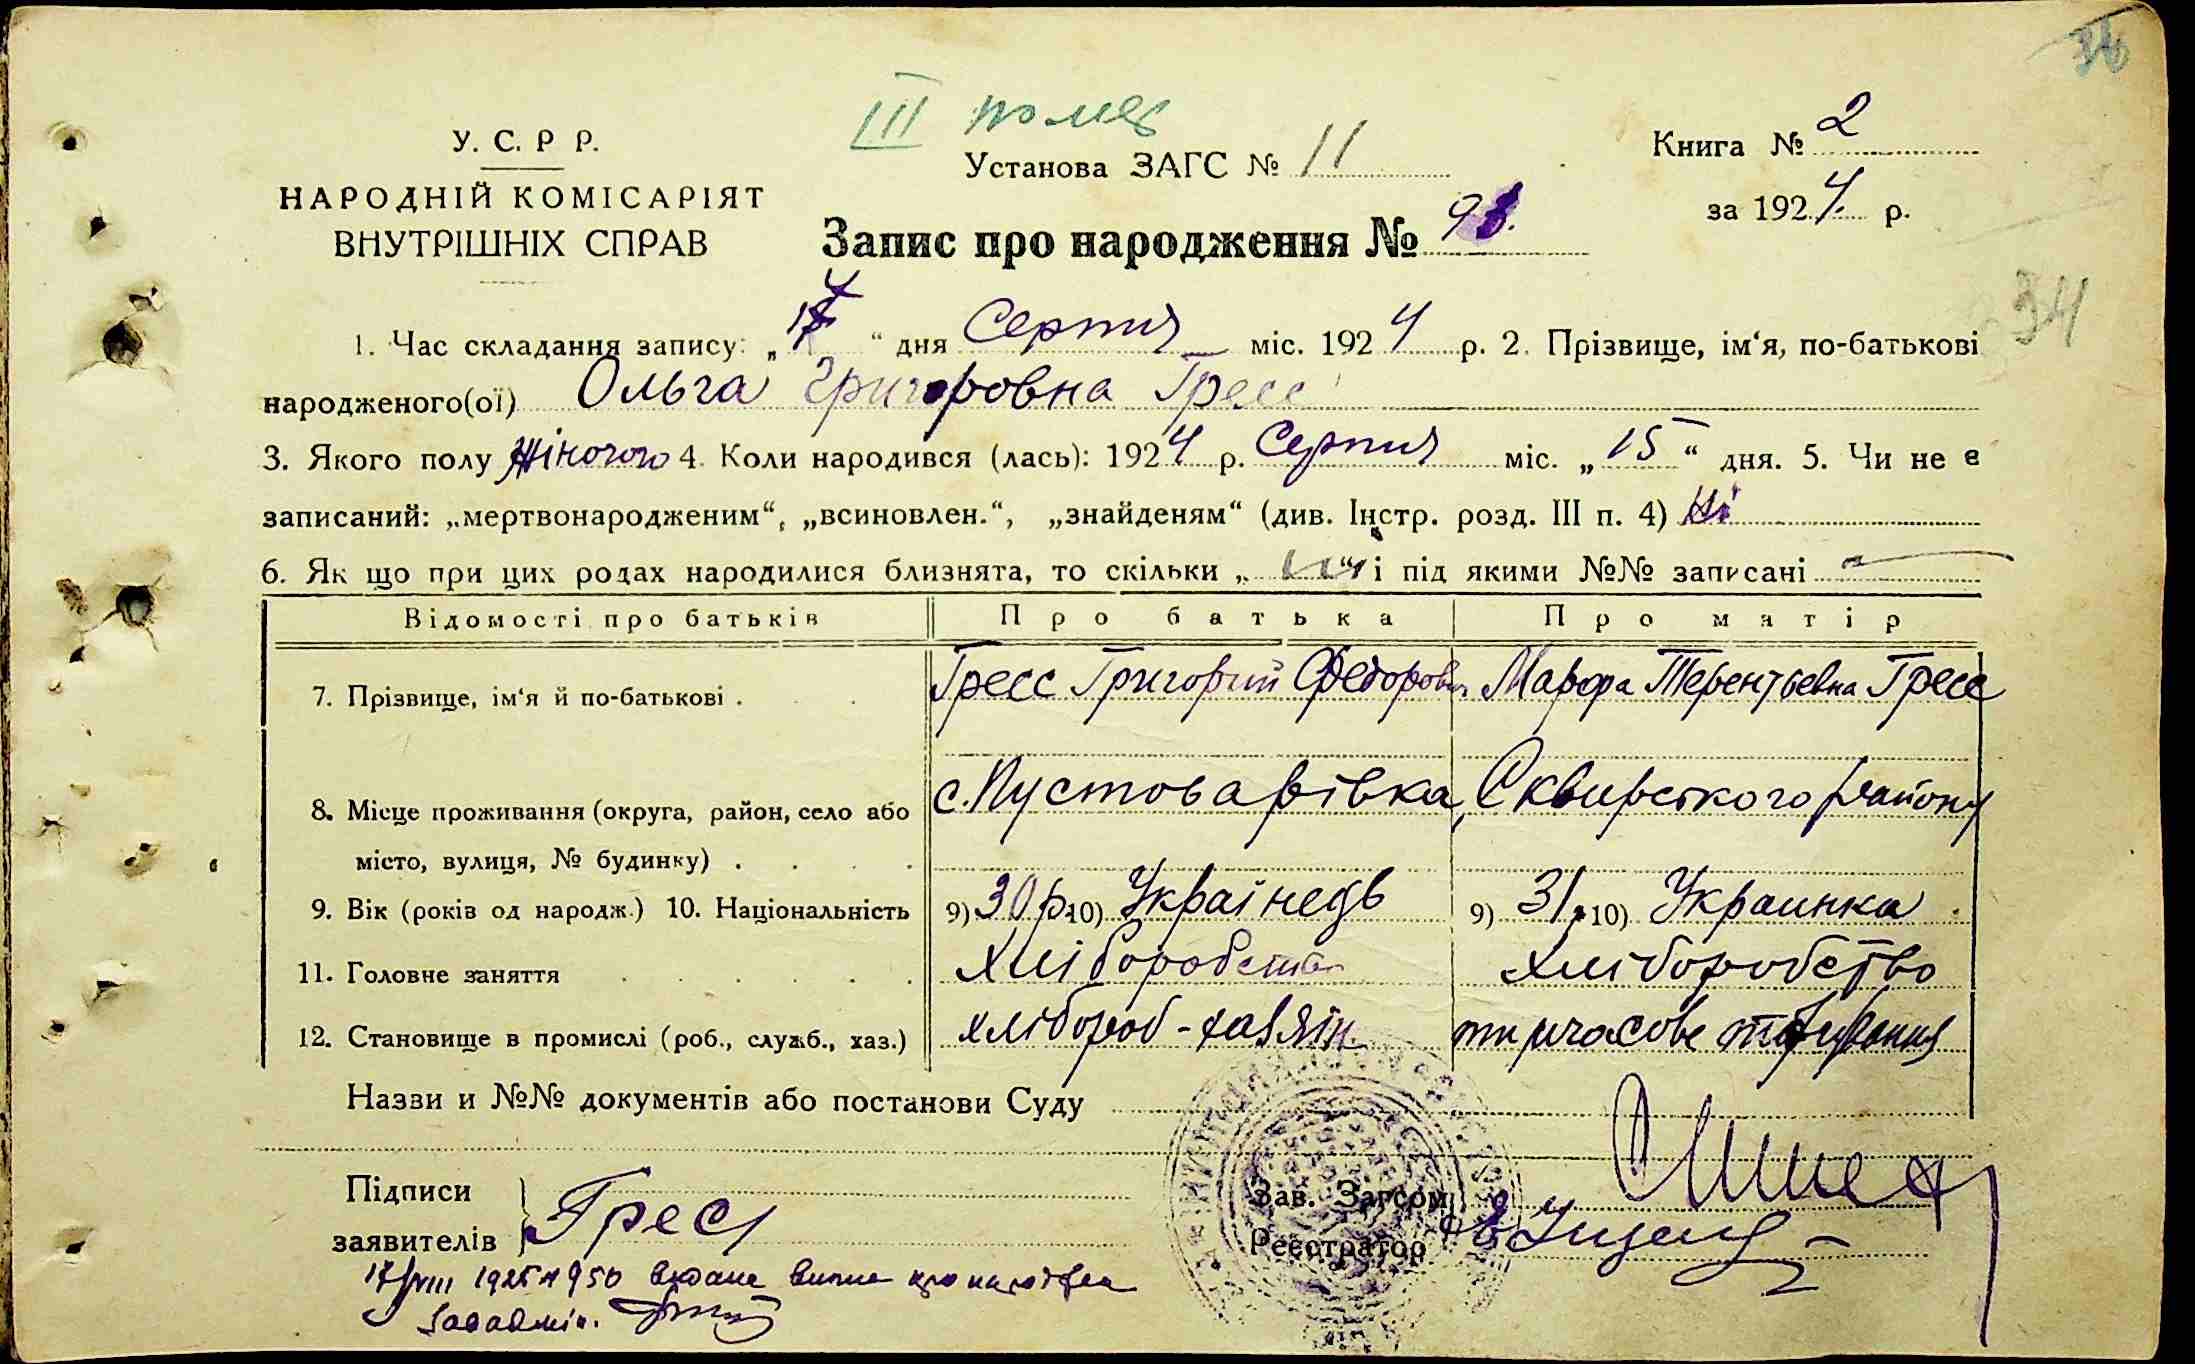 36
ІІІ
У. С. Р Р.
НАРОДНІЙ КОМІСАРІЯТ
ВНУТРІШНІХ СПРАВ
Установа ЗАГС № 11
Книга № 2
за 1924 р.
Запис про народження № 93.
34
1. Час складання запису: „17“ дня Серпня міс. 1924 р. 2. Прізвище, ім‘я, по-батькові
народженого(ої) Ольга Григоровна Гресс
3. Якого полу жіночого 4. Коли народився (лась): 1924 р. Серпня міс. „15“ дня. 5. Чи не є
записаний: „мертвонародженим“, „всиновлен.“, „знайденям“ (див. Інстр. розд. III п. 4) Ні
6. Як що при цих родах народилися близнята, то скільки „ “ і під якими №№ записані —
Відомості про батьків Про батька Про матір
7. Прізвище, ім‘я й по-батькові . Гресс Григорий Федорович Марфа Терентьевна Гресс
8. Місце проживання (округа, район, село або с. Пустоварівка, Сквирського району
місто, вулиця, № будинку) .
9. Вік (років од народж.) 10. Національність 9) 30 р. 10) Українець 9) 31 р. 10) Украинка
11. Головне заняття Хліборобство Хліборобство
12. Становище в промислі (роб., служб., хаз.) хлібороб-хазяїн. тимчасове
Назви и №№ документів або постанови Суду
Підписи
заявителів } Гресс
Зав. Загсом
Реєстратор
17/VIII 1925 № 950 видана випис про народження